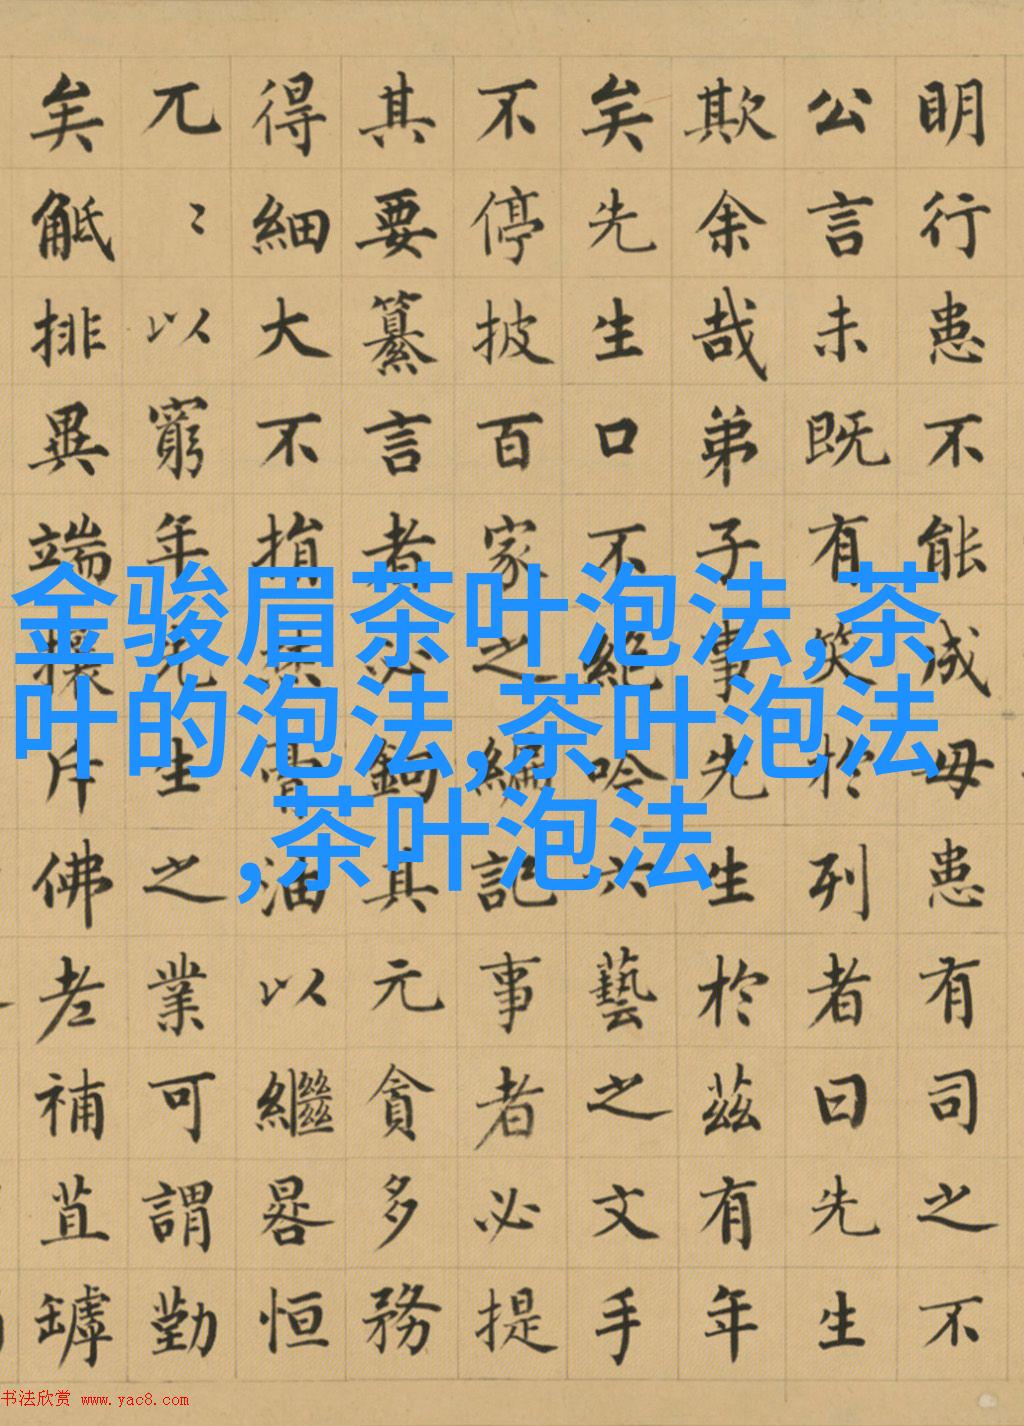 明行患不能成毋患有司之不
公言未既有笑於列者曰先生
欺余哉弟子事先生於茲有年
矣先生口不絕吟六藝之文手
不停披百家之編記事者必提
其要纂言者必鉤其元貪多務
得細大不捐焚膏油以繼晷恒
兀〻以窮年先生之業可謂勤
矣觝排異端攘斥佛老補苴罅
金骏眉茶叶泡法,茶
叶的泡法,茶叶泡法
,茶叶泡法
书法欣赏 www.yac8.com